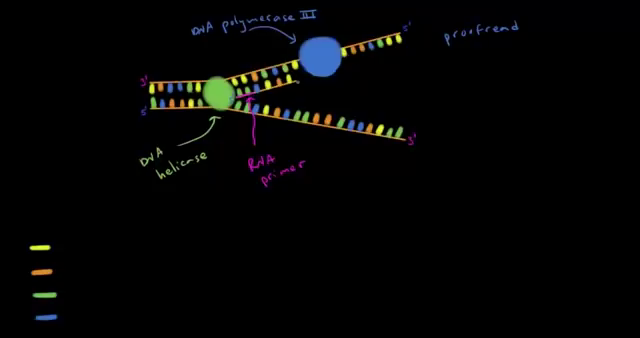 DNA polymerase III
5'
proofread
3'
5'
3'
DNA
helicase
RNA
primer